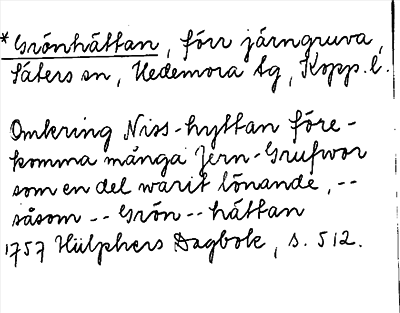 *Grönhättan, förr järngruva,
Säters sn, Hedemora tg, Kopp. l.
Omkring Niss-hyttan före-
komma många Jern-Grufwor
som en del warit lönande, --
såsom -- Grön -- hättan
1757 Hülphers Dagbok, s. 512.